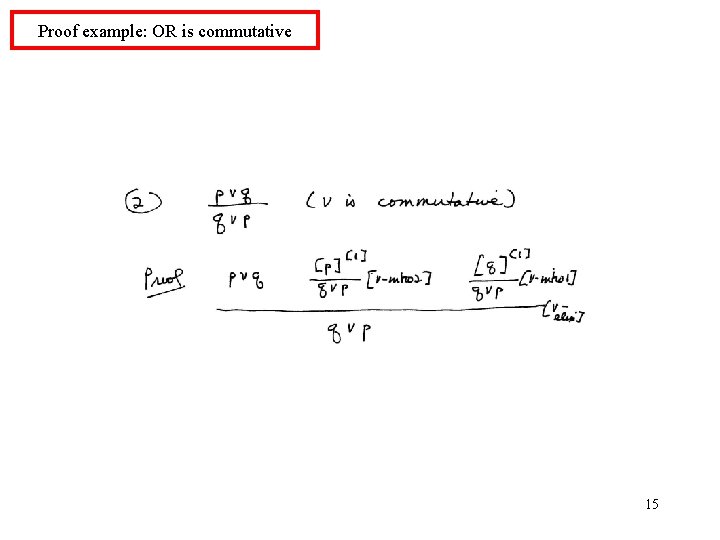 Proof example: OR is commutative
② p∨q (∨ is commutative)
q∨p
Proof p∨q [p][1] [q][1]
q∨p [∨-intro2] q∨p [∨-intro1]
[∨-elim]
q∨p
15